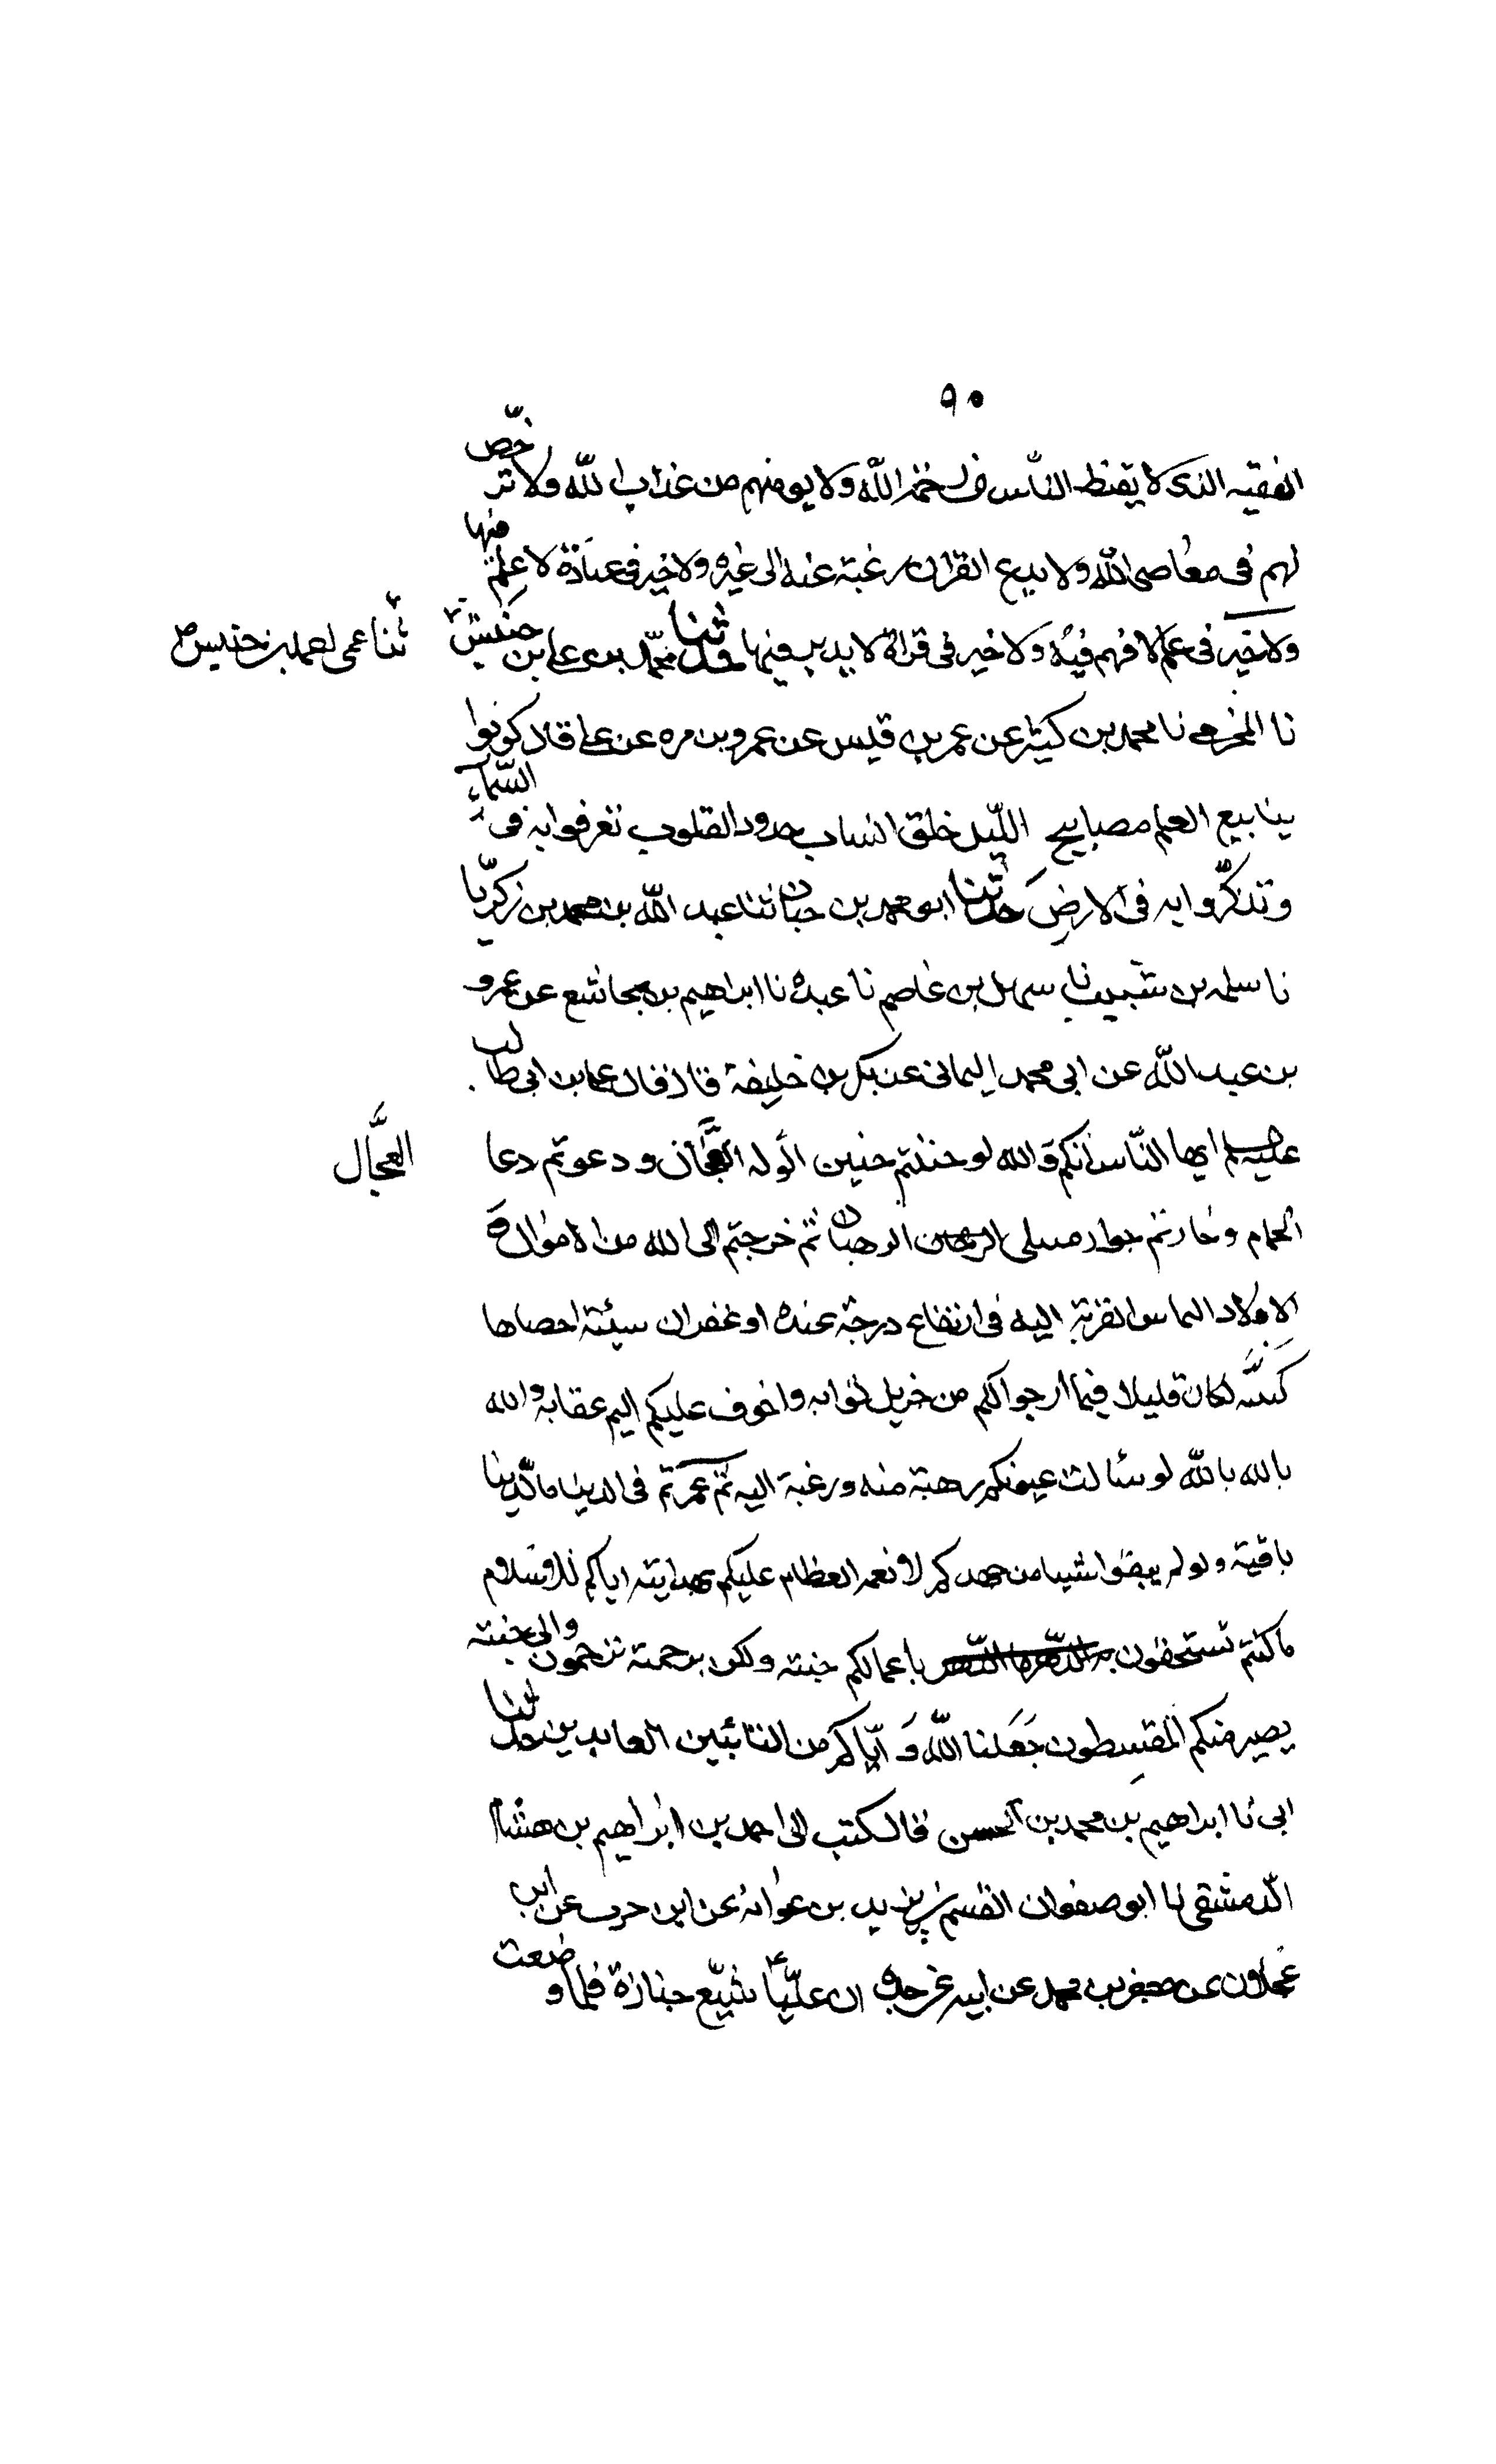 ٩٠
الفقيه الذى لا يقنط الناس من رحمة الله ولا يومنهم من عذاب الله ولا يرخص
لهم فى معاصى الله ولا يدع القران رغبة عنه الى غيره ولا خير فى عبادة لا علم فيها
ولا خير فى علم لا فهم فيه ولا خير فى قراة لا تدبر فيها حدثنا محمد بن على بن حبيش
ثنا عمى احمد بن حبيش
نا المخرمى نا محمد بن كثير عن عمر بن قيس عن عمرو بن مره عن على قال كونوا
ينابيع العلم مصابيح الليل خلق الثياب جدد القلوب تعرفوا به فى السماء
وتذكروا به فى الارض حدثنا ابو محمد بن حبان ثنا عبد الله بن محمد بن زكريا
نا سلمه بن شبيب نا سهل بن عاصم نا عبده نا ابراهيم بن مجاشع عن عمرو
بن عبد الله عن ابى محمد اليمانى عن بكر بن خليفة قال قال على بن ابى طالب
عليه ايها الناس انكم والله لو حننتم حنين الوله العجال ودعوتم دعا
العجال
الحمام وجارتم جوار مبتلى الرهبان ثم خرجتم الى الله من الاموال و
الاولاد التماس القربة اليه فى ارتفاع درجة عنده او غفران سيئة احصاها
كتبته لكان قليلا فيما ارجوا لكم من جزيل ثوابه واخوف عليكم اليم عقابه والله
بالله بالله لو سالت عيونكم رهبة منه ورغبة اليه ثم عمرتم فى الدنيا ما الدنيا
باقية ولو لم يبقوا شيا من جهدكم لانعمه العظام عليكم بهدايته اياكم للاسلام
ما كنتم تستحقون به باعمالكم جنته ولكن برحمته ترحمون والى جنته
يصير منكم المقسطون جعلنا الله واياكم من التائبين العابدين حدثنا
ابى نا ابراهيم بن محمد بن الحسن قال كتب الى احمد بن ابراهيم بن هشام
الدمشقى نا ابو صفوان القسم بن يزيد بن عوانة عن ابن حرب عن ابن
عجلان عن جعفر بن محمد عن ابيه عن جده ان عليا شيع جنازة فلما وضعت